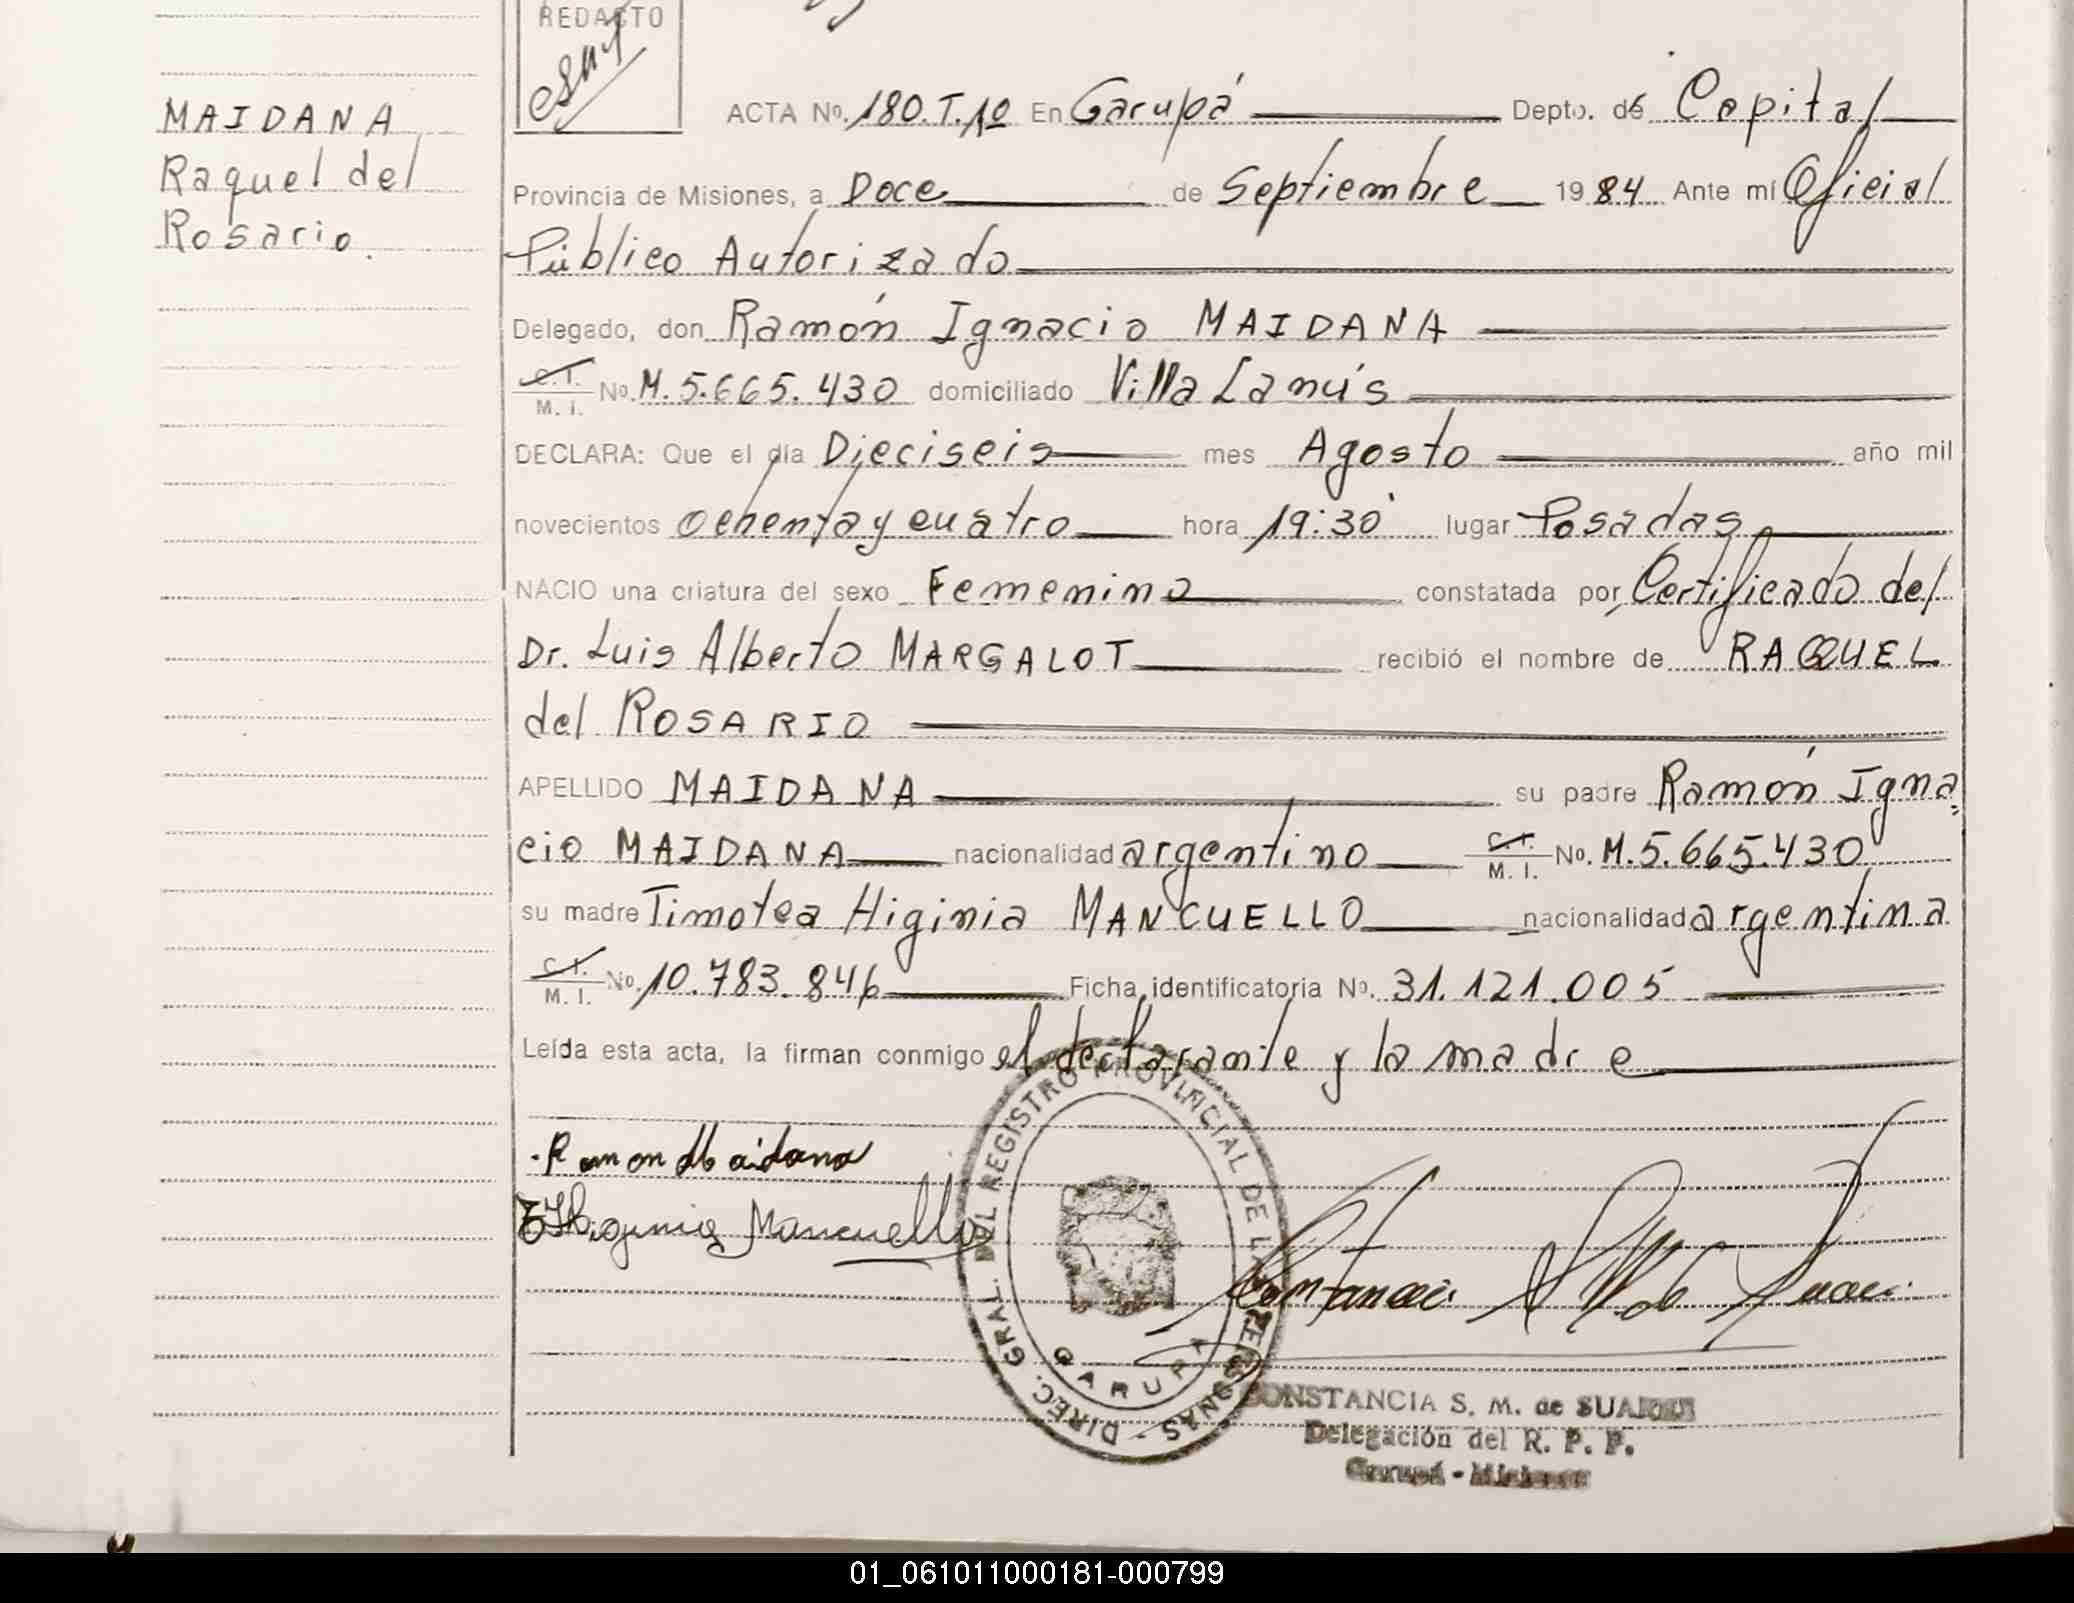 REDACTO
MAIDANA
Raquel del
Rosario.
ACTA No. 180.T.1º En Garupá Depto. de Capital
Provincia de Misiones, a Doce de Septiembre 1984 Ante mí Oficial
Público Autorizado
Delegado, don Ramón Ignacio MAIDANA
C.I. M. I. No. M. 5.665.430 domiciliado Villa Lanús
DECLARA: Que el día Dieciseis mes Agosto año mil
novecientos ochenta y cuatro hora 19:30 lugar Posadas
NACIO una criatura del sexo Femenino constatada por Certificado del
Dr. Luis Alberto MARGALOT recibió el nombre de RAQUEL
del ROSARIO
APELLIDO MAIDANA su padre Ramón Igna=
cio MAIDANA nacionalidad argentino C.I. M. I. No. M.5.665.430
su madre Timotea Higinia MANCUELLO nacionalidad argentina
C.I. M. I. No. 10.783.846 Ficha identificatoria No. 31.121.005
Leída esta acta, la firman conmigo el declarante y la madre
Ramon Maidana
Higinia Mancuello
DIREC. GRAL. DEL REGISTRO PROVINCIAL DE LAS PERSONAS -
GARUPA
CONSTANCIA S. M. de
Delegación del R. P. P.
Garupá - Misiones
01_061011000181-000799